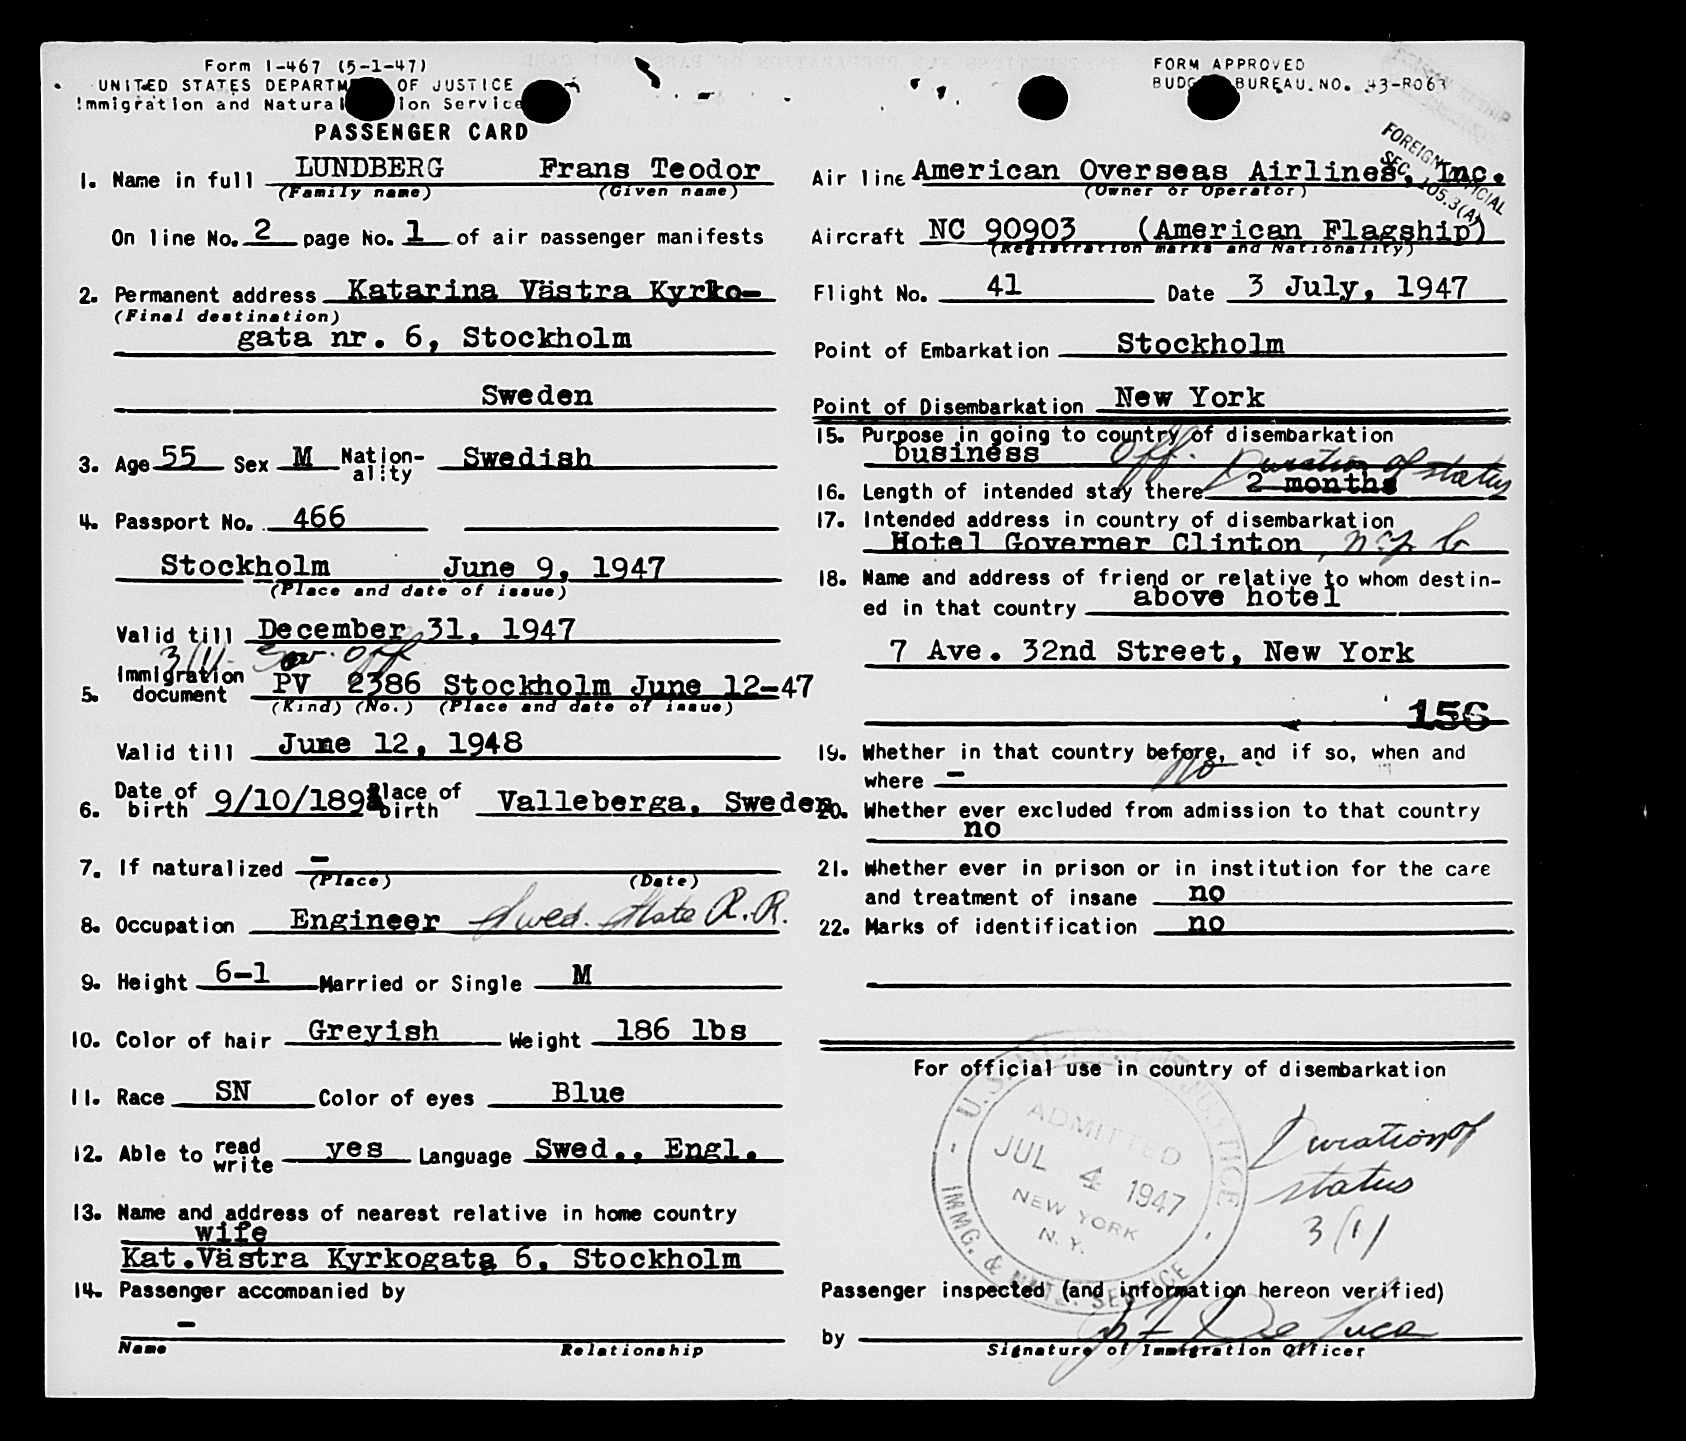 Form I-467 (5-1-47)
UNITED STATES DEPARTM OF JUSTICE
Immigration and Natural ion Service
PASSENGER CARD
1. Name in full LUNDBERG Frans Teodor
(Family name) (Given name)
On line No. 2 page No. 1 of air passenger manifests
2. Permanent address Katarina Västra Kyrko-
(Final destination)
gata nr. 6, Stockholm
Sweden
3. Age 55 Sex M Nation-ality Swedish
4. Passport No. 466
Stockholm June 9, 1947
(Place and date of issue)
Valid till December 31, 1947
3(1) Gov. Off
5. Immigration document PV 2386 Stockholm June 12-47
(Kind) (No.) (Place and date of issue)
Valid till June 12, 1948
6. Date of birth 9/10/189 Place of birth Valleberga, Sweden
7. If naturalized -
(Place) (Date)
8. Occupation Engineer Swed. State R.R.
9. Height 6-1 Married or Single M
10. Color of hair Greyish Weight 186 lbs
11. Race SN Color of eyes Blue
12. Able to read write yes Language Swed., Engl.
13. Name and address of nearest relative in home country
wife
Kat.Västra Kyrkogata 6, Stockholm
14. Passenger accompanied by
-
Name Relationship
FORM APPROVED
BUDG BUREAU.NO. 43-R063
FOREIGN OFFICIAL
SEC. 105.3(A)
Air line American Overseas Airlines, Inc.
(Owner or Operator)
Aircraft NC 90903 (American Flagship)
(Registration marks and Nationality)
Flight No. 41 Date 3 July, 1947
Point of Embarkation Stockholm
Point of Disembarkation New York
15. Purpose in going to country of disembarkation
business Off. Duration of status
16. Length of intended stay there 2 months
17. Intended address in country of disembarkation
Hotel Governer Clinton, N.Y.C.
18. Name and address of friend or relative to whom destin-
ed in that country above hotel
7 Ave. 32nd Street, New York
156
19. Whether in that country before, and if so, when and
where - No
20. Whether ever excluded from admission to that country
no
21. Whether ever in prison or in institution for the care
and treatment of insane no
22. Marks of identification no
For official use in country of disembarkation
ADMITTED
JUL 4 1947
NEW YORK
N. Y.
IMMG. & NATZ. SERVICE
Duration of
status
3(1)
Passenger inspected (and information hereon verified)
by De Luca
Signature of Immigration Officer